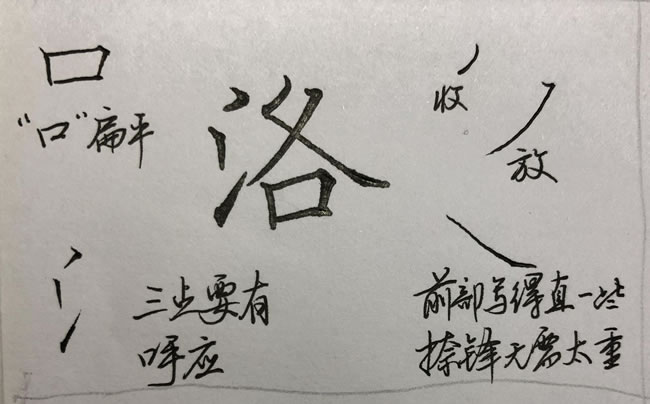 口
"口"扁平
洛
收
放
氵
三点要有
呼应
前部写得直一些
捺锋无需太重